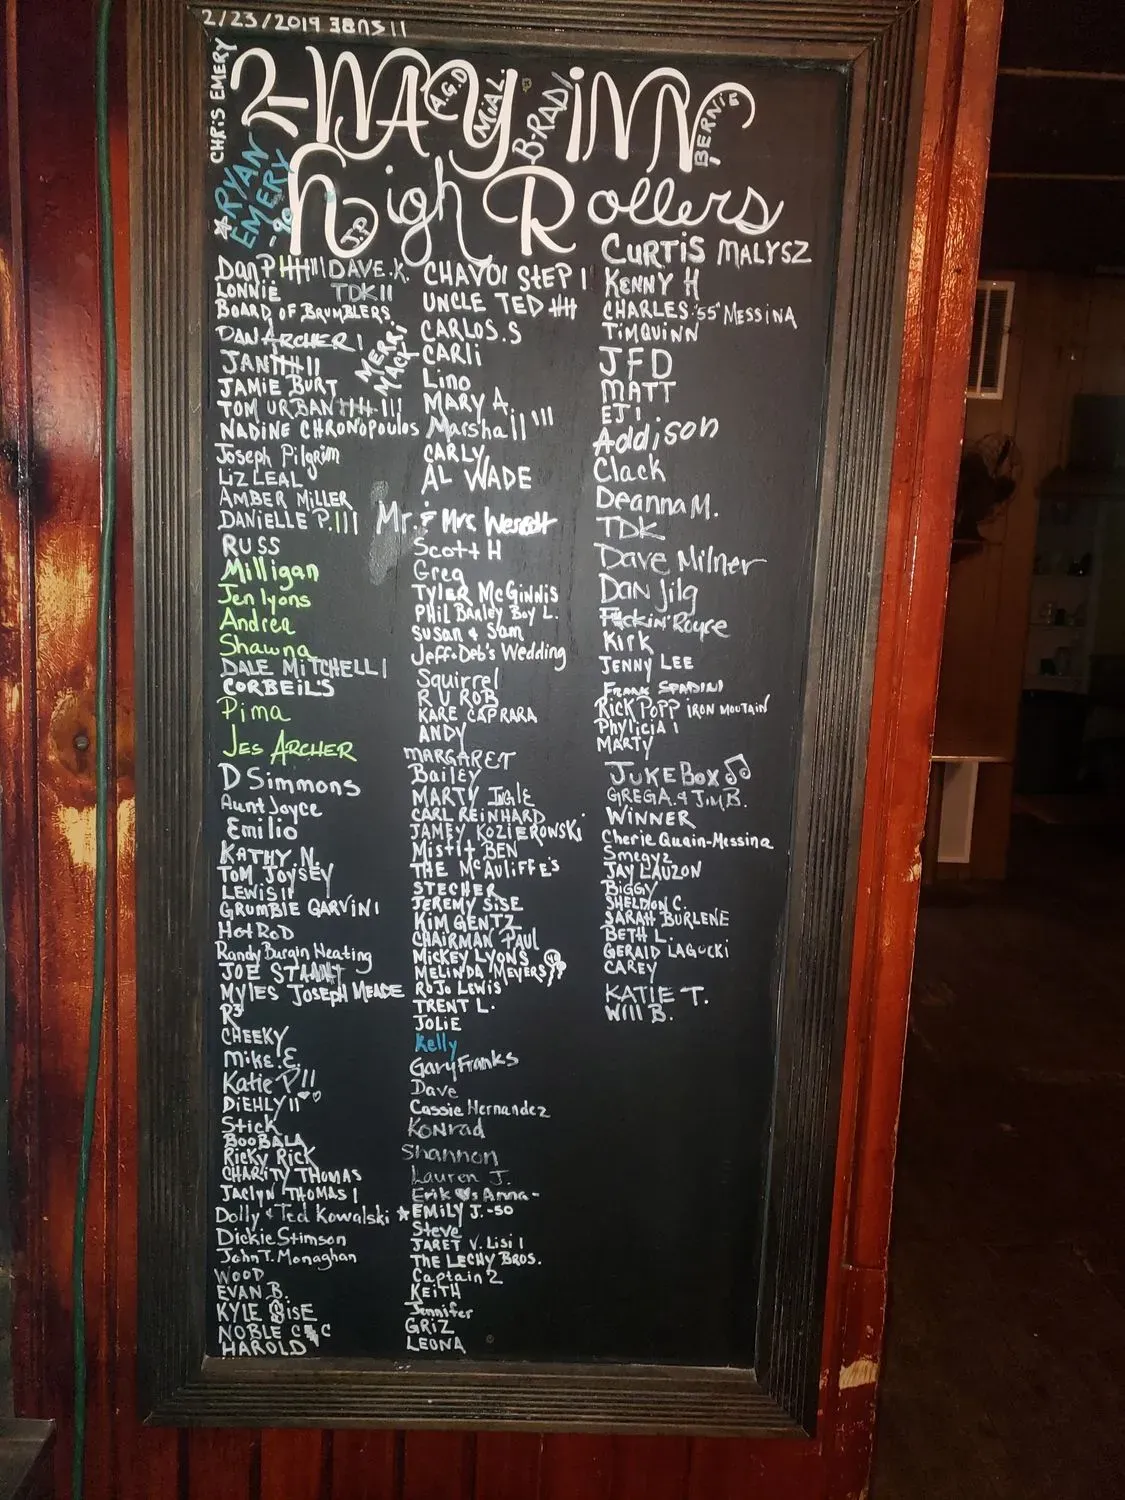 2/23/2019
CHRIS EMERY
2-WAY iNN
A.G.D
MiAL.
B-RAD
BERNiE
High Rollers
J.P.
★RYAN EMERY
-90
DanP 卌III
DAVE.K.
LONNiE
TDK II
BOARD OF BRUMBLERS
DAN ARCHER I
MERRi MACK
JAN 卌II
JAMiE BURT
TOM URBAN 卌 III
NADiNE CHRONOPOULOS
Joseph Pilgrim
LiZ LEAL
AMBER MiLLER
DANiELLE P. III
RUSS
Milligan
Jen lyons
Andrea
Shawna
DALE MiTCHELL I
CORBEiL'S
Pima
JES ARCHER
D Simmons
Aunt Joyce
Emilio
KATHY. N.
TOM JOYSEY
LEWiS II
GRUMBiE GARViNI
Hot RoD
Randy Burgin Heating
JOE
MYLES JOSEPH MEADE
R3
CHEEKY
MiKE.E.
Katie P!!
DiEHLY II
Stick
BOOBALA
Ricky Rick
CHARiTY THOMAS
Jaclyn THOMAS I
Dolly & Ted Kowalski
Dickie Stimson
John T. Monaghan
WOOD
EVAN B.
KYLE
NOBLE
HAROLD
CHAVO! StEP I
UNCLE TED 卌
CARLOS.S
CARLi
Lino
MARY A.
Marshall III
CARLY
AL WADE
Mr. & Mrs
Scott H
Greg
TYLER McGiNNiS
PHiL BARLEY BOY L.
SUSAN & Sam
Jeff & Deb's Wedding
Squirrel
R U ROB
KARE CAFRARA
ANDY
MARGARET
Bailey
MARTY INGLE
CARL REiNHARD
JAMEY KOZiEROWSKi
Misfit BEN
THE McAULiFFE'S
STECHER
JEREMY SiSE
KiM GENTZ
CHAIRMAN PAUL
MiCKEY LYONS
MELiNDA MEYERS
RoJo LEWiS
TRENT L.
JOLiE
Kelly
Gary Franks
Dave
Cassie Hernandez
Konrad
Shannon
Lauren J.
Erik ♥s Anna-
★EMiLY J.-50
Steve
JARET V. Lisi I
THE LECHY BROS.
Captain 2
KEiTH
Jennifer
GRiZ
LEONA
CURTiS MALYSZ
KENNY H
CHARLES "55" MESSiNA
TiM QUiNN
JFD
MATT
EJ!
Addison
Clack
Deanna M.
TDK
Dave Milner
Dan Jilg
F*ckin' Royce
KiRK
JENNY LEE
FRANK SPADiNi
RiCK POPP iRON MOUTAiN
Phylicia I
MARTY
JUKEBOX ♫
GREG A. & JiM B.
WiNNER
Cherie Quain-Messina
Smeayz
JAY LAUZON
BiGGY
SHELDON C.
SARAH BURLENE
BETH L.
GERALD LAGUCKi
CAREY
KATiE T.
Will B.